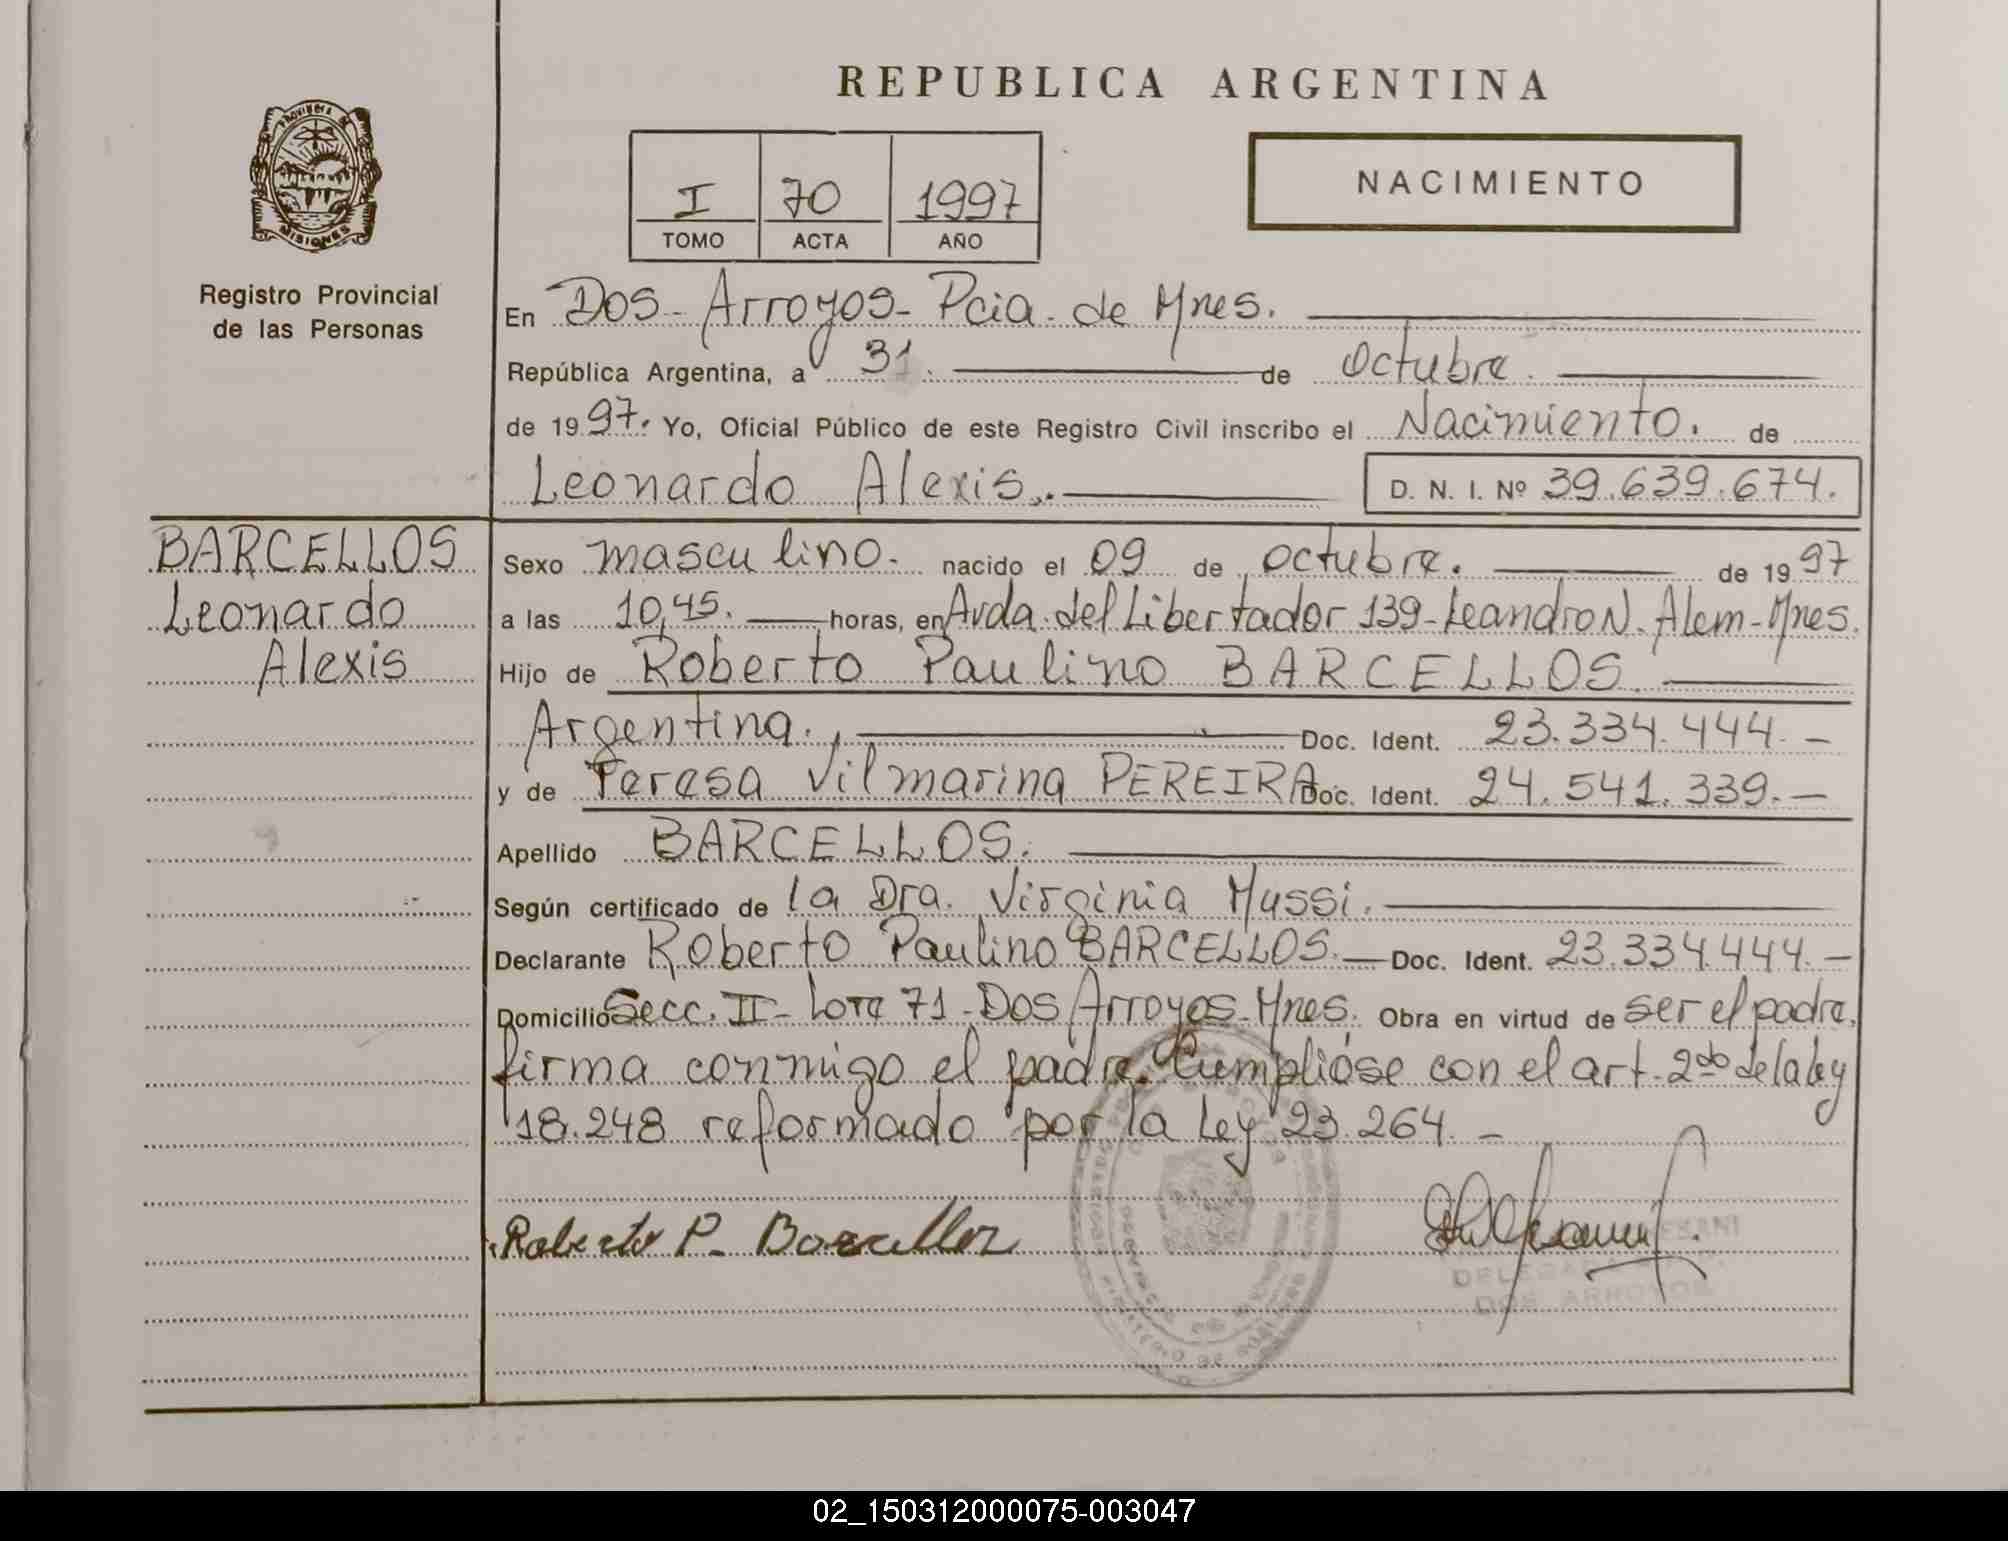 REPUBLICA ARGENTINA
NACIMIENTO
I 70 1997
TOMO ACTA AÑO
Provincia de
MISIONES
Registro Provincial
de las Personas
En Dos Arroyos - Pcia. de Mnes.
República Argentina, a 31. de Octubre.
de 1997. Yo, Oficial Público de este Registro Civil inscribo el Nacimiento. de
Leonardo Alexis. D. N. I. Nº 39.639.674.
BARCELLOS
Leonardo
Alexis
Sexo masculino. nacido el 09 de octubre. de 1997
a las 10,45. horas, en Avda. del Libertador 139 - Leandro N. Alem - Mnes.
Hijo de Roberto Paulino BARCELLOS.
Argentina. Doc. Ident. 23.334.444.-
y de Teresa Vilmarina PEREIRA Doc. Ident. 24.541.339.-
Apellido BARCELLOS.
Según certificado de la Dra. Virginia Mussi.
Declarante Roberto Paulino BARCELLOS. Doc. Ident. 23.334.444.-
Domicilio Secc. II - Lote 71 - Dos Arroyos - Mnes. Obra en virtud de ser el padre,
firma conmigo el padre. Cumplióse con el art. 2do de la ley
18.248 reformado por la Ley 23.264.-
Roberto P. Barcellos
DOS ARROYOS
02_150312000075-003047